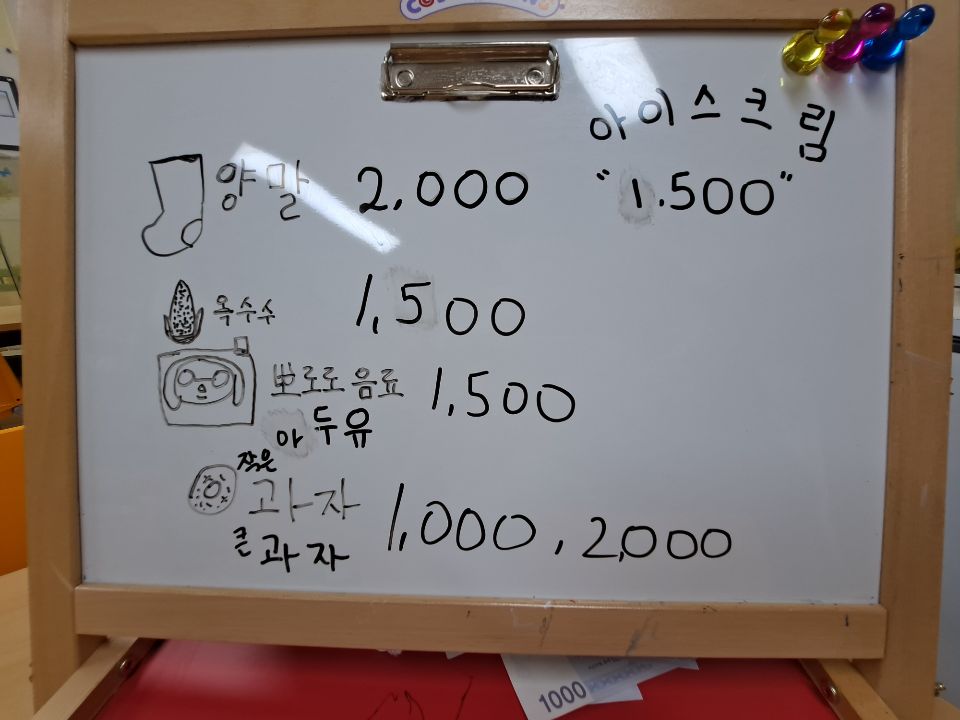 아이스크림
"1.500"
양말 2,000
옥수수 1,500
뽀로로 음료 1,500
아 두유
작은
과자 1,000, 2,000
큰 과자
1000